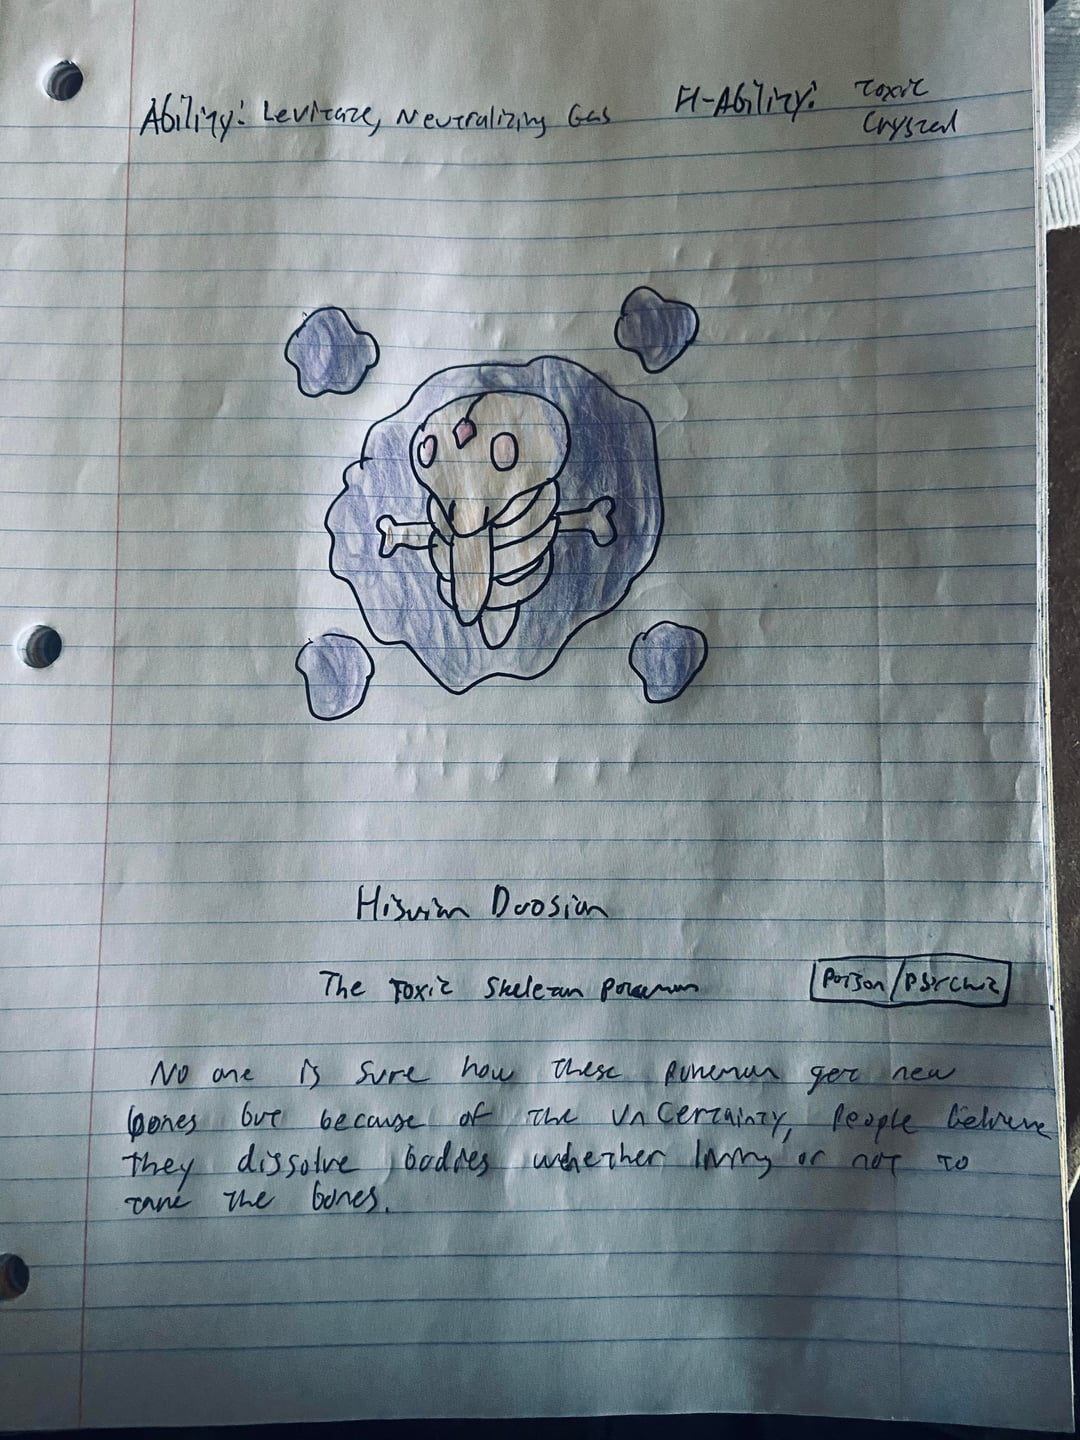 Ability: Levitate, Neutralizing Gas
H-Ability: Toxic
Crystal
Hisuian Duosion
The Toxic Skeleton Pokemon
Poison/Psychic
No one is sure how these pokemon get new
bones but because of the uncertainty, people believe
they dissolve bodies whether living or not to
take the bones.